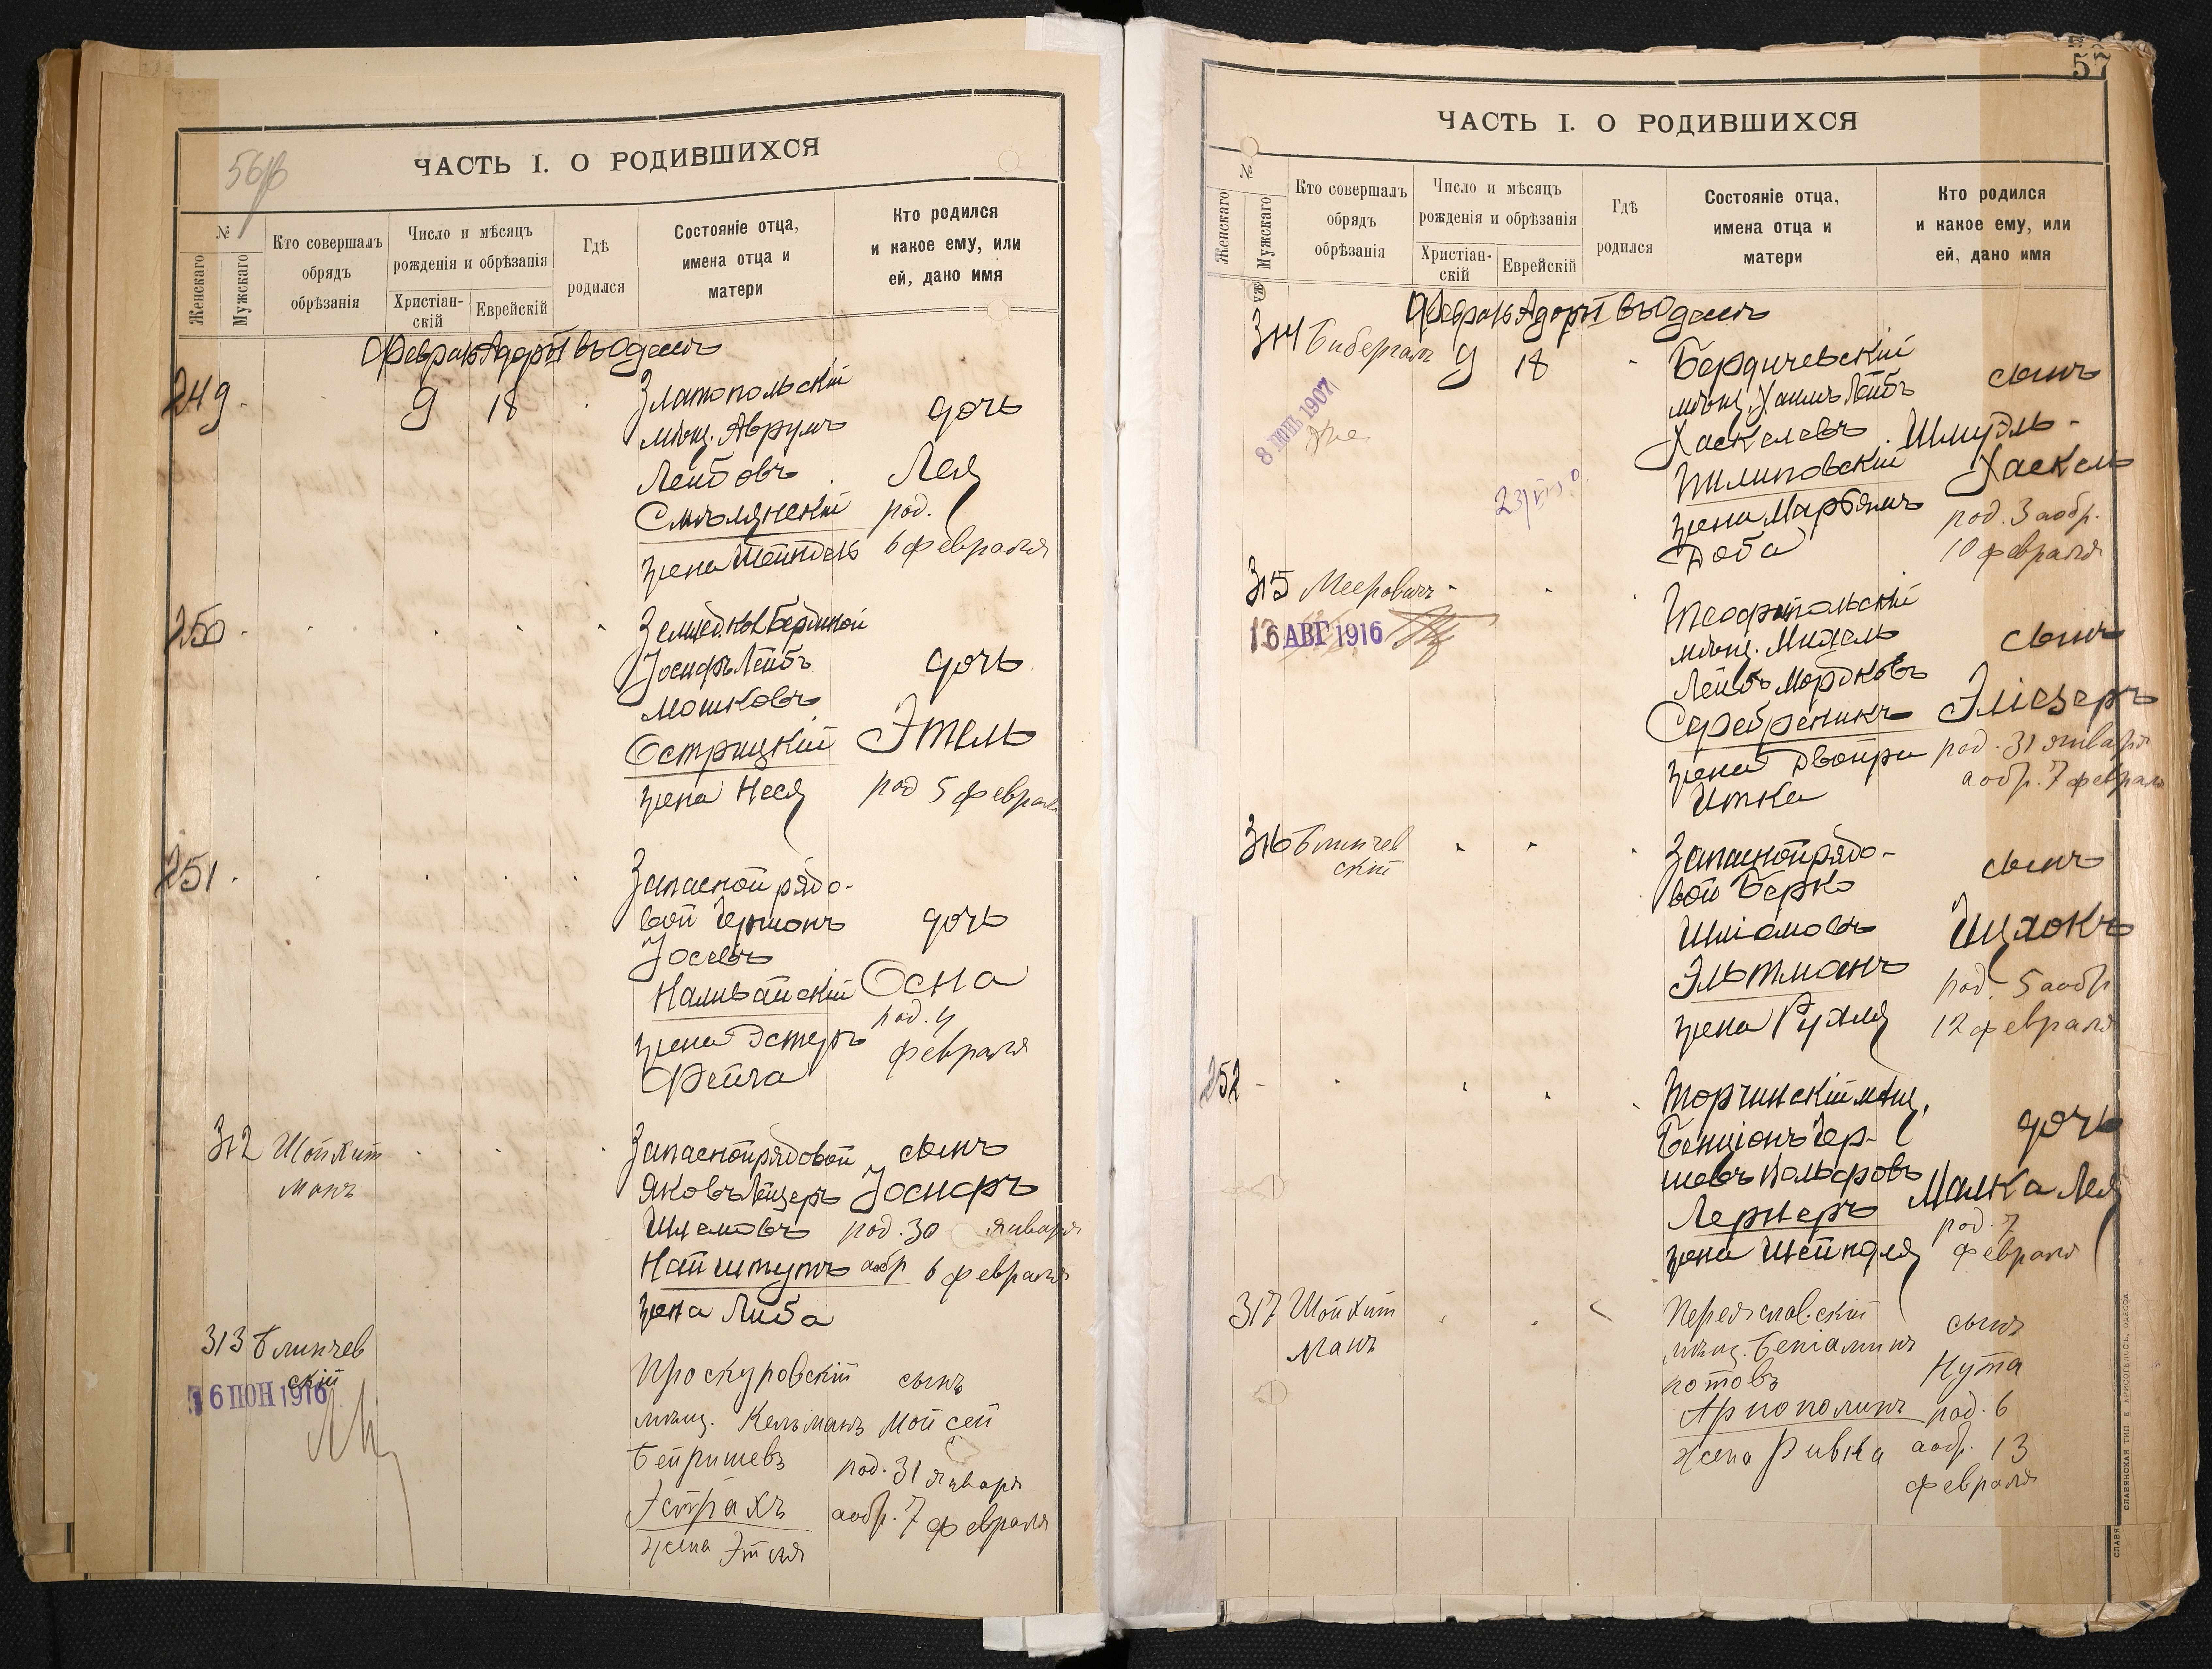 56об
ЧАСТЬ I. О РОДИВШИХСЯ
№
Женскаго
Мужскаго
Кто совершалъ
обрядъ
обрѣзанія
Число и мѣсяцъ
рожденія и обрѣзанія
Христіан-
скій
Еврейскій
Гдѣ
родился
Состояніе отца,
имена отца и
матери
Кто родился
и какое ему, или
ей, дано имя
Февраль Адаръ I въ Одессѣ
249
9
18
Златопольскій
мѣщ. Аврумъ
Лейбовъ
Смѣлянскій
жена Шейндель
дочь
Лея
род.
6 февраля
250
Іосифъ Лейбъ
Мошковъ
Острицкій
жена Неся
дочь
Этель
род 5 февраля
251
Запасной рядо-
вой Гершонъ
Іосевъ
Наливайскій
жена Эстеръ
Фейга
дочь
Осна
род. 4
февраля
312
Шойхит
манъ
Запасной рядовой
Яковъ Лейзеръ
Шлемовъ
Найштутъ
жена Либа
сынъ
Іосифъ
род. 30 января
а обр 6 февраля
313
Блинчев
скій
16 ІЮН 1916
Проскуровскій
мѣщ. Кельманъ
Бейришевъ
Эстрахъ
жена Этля
сынъ
Мойсей
род. 31 января
а обр. 7 февраля
57
ЧАСТЬ I. О РОДИВШИХСЯ
№
Женскаго
Мужскаго
Кто совершалъ
обрядъ
обрѣзанія
Число и мѣсяцъ
рожденія и обрѣзанія
Христіан-
скій
Еврейскій
Гдѣ
родился
Состояніе отца,
имена отца и
матери
Кто родился
и какое ему, или
ей, дано имя
Февраль Адаръ I въ Одессѣ
314
Бибергал
9
18
8 ІЮН 1907
Бердичевскій
мѣщ. Хаимъ Лейбъ
Хаскелевъ
Пилиповскій
жена Марьямъ
Доба
сынъ
Шмуэль-
Хаскель
род. 3 а обр.
10 февраля
315
Мееровичъ
16 АВГ 1916
Теофипольскій
мѣщ. Михель
Лейбъ Мордковъ
Серебреникъ
жена Двойра
Итка
сынъ
Эліезеръ
род. 31 января
а обр. 7 февраля
316
Блинчев
скій
Запасной рядо-
вой Берко
Шліомовъ
Эльтманъ
жена Рухля
сынъ
Ицхокъ
род. 5 а обр
12 февраля
252
Торчинскій мѣщ.
Бенціонъ Гер-
шевъ Вольфовъ
Лернеръ
жена Шейндля
дочь
Малка Лея
род. 7
февраля
317
Шойхит
манъ
Переяславскій
мѣщ. Беніаминъ
Нотовъ
жена Ривка
сынъ
Нута
род. 6
а обр. 13
февраля
СЛАВЯНСКАЯ ТИП. Е. ХРИСОГЕЛОСЪ, ОДЕССА